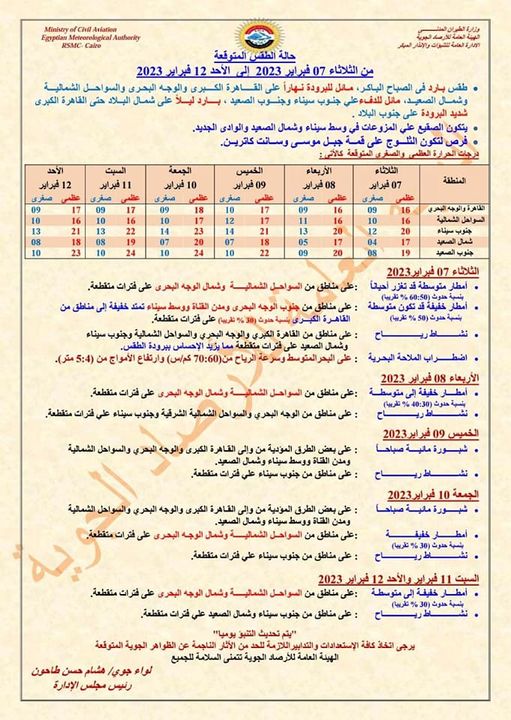 Ministry of Civil Aviation
Egyptian Meteorological Authority
RSMC- Cairo
وزارة الطيران المدنـــــي
الهيئة العامة للأرصاد الجوية
الإدارة العامة للتنبؤات والإنذار المبكر
حالة الطقس المتوقعة
من الثلاثاء 07 فبراير 2023 إلى الأحد 12 فبراير 2023
طقس بارد فى الصباح الباكر، مائل للبرودة نهاراً على القـــاهرة الكبـرى والوجـه البحرى والسواحـل الشماليـــة
وشمال الصعيـد، مائل للدفء علي جنوب سيناء وجنـوب الصعيد ، بـــارد ليـلاً على شمال البـلاد حتى القاهرة الكبرى
شديد البرودة على جنوب البلاد .
يتكون الصقيع علي المزروعات في وسط سيناء وشمال الصعيد والوادى الجديد.
فرص لتكون الثلـوج علي قمـة جبـل موسـى وسـانت كاتريـن.
درجات الحرارة العظمي والصغرى المتوقعة كالآتي:
المنطقة الثلاثاء 07 فبراير الأربعاء 08 فبراير الخميس 09 فبراير الجمعة 10 فبراير السبت 11 فبراير الأحد 12 فبراير
عظمي صغرى عظمي صغرى عظمي صغرى عظمي صغرى عظمي صغرى عظمي صغرى
القاهرة والوجه البحري 16 09 16 09 17 10 18 09 17 09 17 09
السواحل الشمالية 16 10 16 11 16 12 17 12 17 10 16 10
جنوب سيناء 20 12 20 13 21 12 24 13 22 14 21 13
شمال الصعيد 17 04 17 05 18 07 20 07 20 08 18 08
جنوب الصعيد 19 08 20 07 22 07 24 09 24 10 23 10
الثلاثاء 07 فبراير2023
أمطار متوسطة قد تغزر أحياناً : على مناطق من السواحـل الشماليـــة وشمال الوجـه البحرى على فترات متقطعة.
بنسبة حدوث (60:50 % تقريبا)
أمطار خفيفة قد تكون متوسطة : على مناطق من جنوب الوجه البحرى ومدن القناة ووسط سيناء تمتد خفيفة إلى مناطق من
القاهـرة الكبـرى بنسبة حدوث (30 % تقريبا) على فترات متقطعة.
نشـــاط ريـــــاح : على مناطق من القاهرة الكبري والوجه البحري والسواحل الشمالية وجنوب سيناء
وشمال الصعيد على فترات متقطعة مما يزيد الإحساس ببرودة الطقس.
اضطـراب الملاحة البحرية : على البحرالمتوسط وسرعة الرياح من(70:60 كم/س) وارتفاع الأمواج من (5:4 متر).
الأربعاء 08 فبراير 2023
أمطـار خفيفـة إلى متوسطــة : على مناطق من السواحـل الشماليـــة وشمال الوجـه البحرى على فترات متقطعة.
بنسبة حدوث (40:30 % تقريبا)
نشـــاط ريـــــاح : على مناطق من الوجه البحري والسواحل الشمالية الشرقية وجنوب سيناء علي فترات متقطعة.
الخميس 09 فبراير2023
شبـــورة مائيـة صباحـاً : على بعض الطرق المؤدية من وإلى القـاهرة الكبرى والوجه البحري والسواحل الشمالية
ومدن القناة ووسط سيناء وشمال الصعيد.
نشـــاط ريـــــاح : على مناطق من جنوب سيناء علي فترات متقطعة.
الجمعة 10 فبراير 2023
شبـــورة مائيـة صباحـاً : على بعض الطرق المؤدية من وإلى القـاهرة الكبرى والوجه البحري والسواحل الشمالية
ومدن القناة ووسط سيناء وشمال الصعيد.
أمطـار خفيفــــة : على مناطق من السواحـل الشماليـــة وشمال الوجـه البحرى على فترات متقطعة.
بنسبة حدوث (30 % تقريبا)
نشـــاط ريـــــاح : على مناطق من جنوب سيناء علي فترات متقطعة.
السبت 11 فبراير والأحد 12 فبراير 2023
أمطـار خفيفـة إلى متوسطــة : على مناطق من السواحـل الشماليـــة وشمال الوجـه البحرى على فترات متقطعة.
بنسبة حدوث (30 % تقريبا)
نشـــاط ريـــــاح : على مناطق من جنوب سيناء وشمال الصعيد علي فترات متقطعة.
"يتم تحديث التنبؤ يوميا"
يرجى اتخاذ كافة الإستعدادات والتدابيراللازمة للحد من الآثار الناجمة عن الظواهر الجوية المتوقعة
الهيئة العامة للأرصاد الجوية تتمنى السلامة للجميع
لواء جوي/ هشام حسن طاحون
رئيس مجلس الإدارة